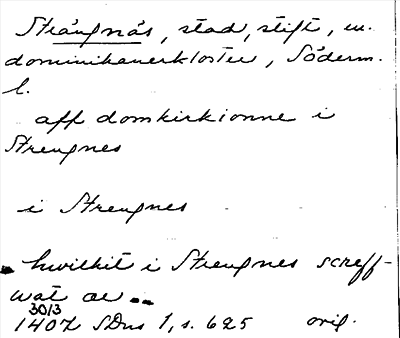 Strängnäs, stad, stift, m.
dominikanerkloster, Söderm.
l.
aff domkirkionne i
Strengnes
i Strengnes
hwilkit i Strengnes screff-
wat ær
30/3
1407 SDns 1, s. 625 orig.